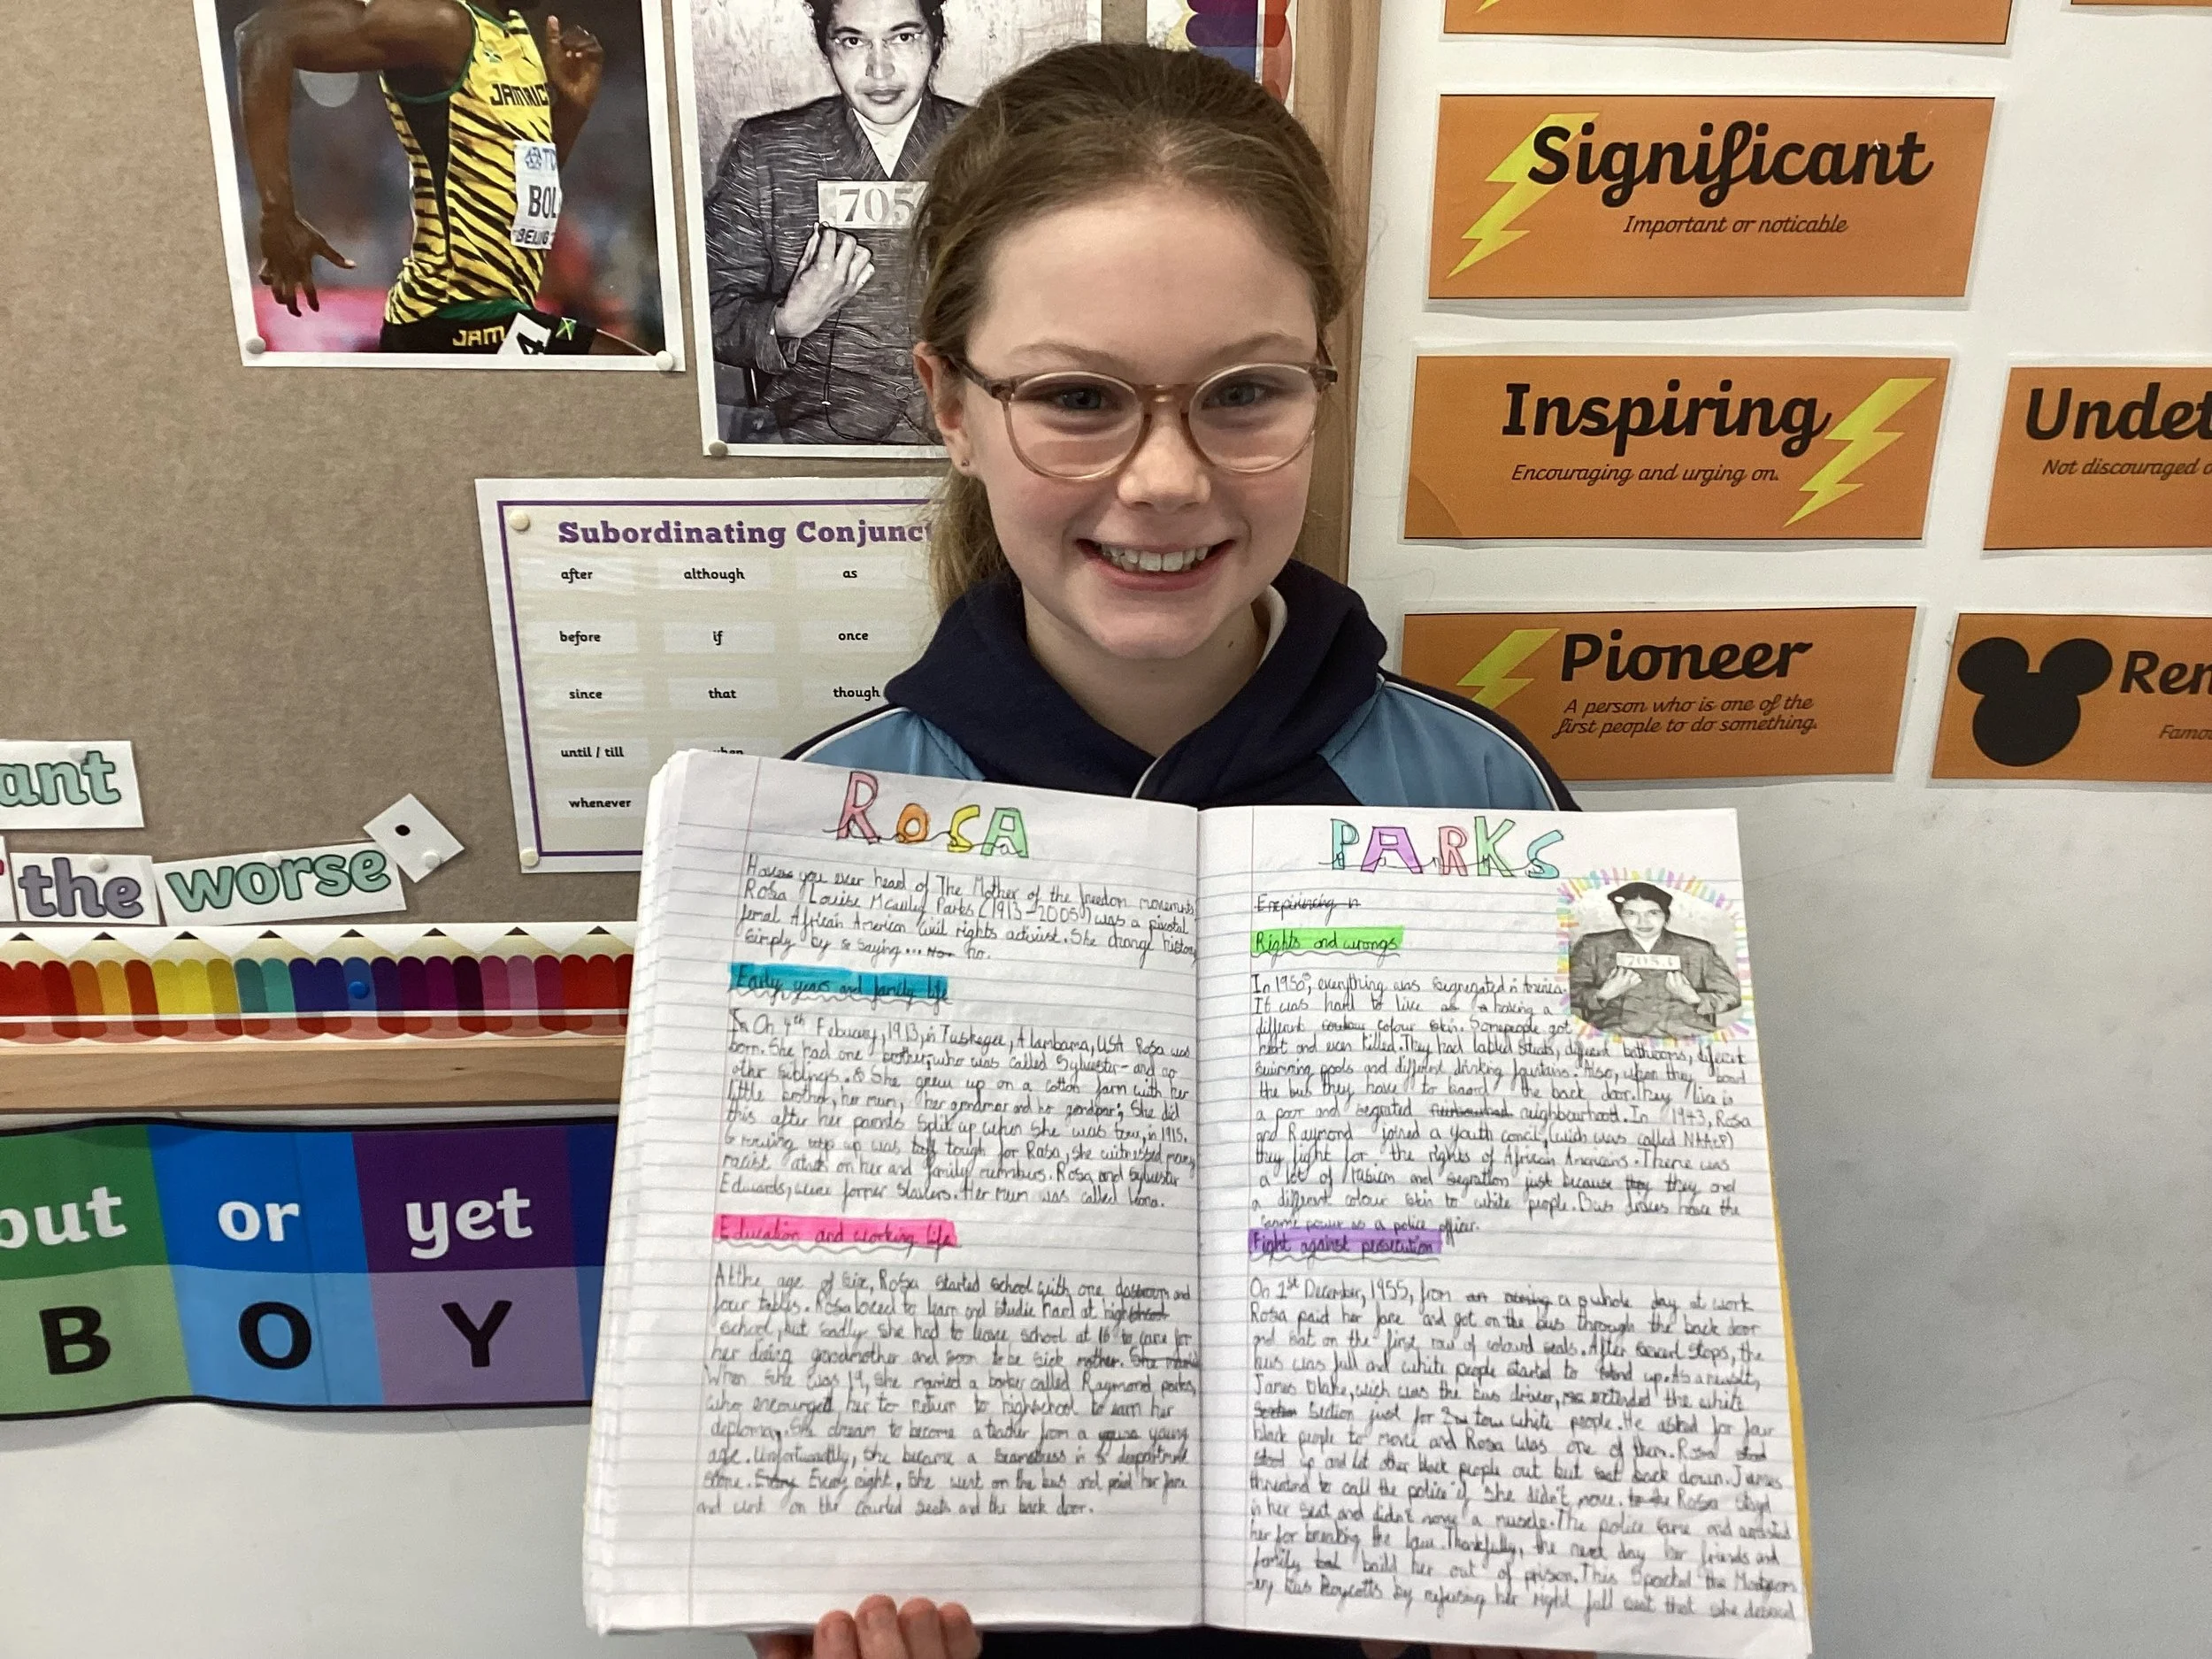 JAMAIC
BOL
BEIJING
JAM
4
705
Significant
Important or noticable
Inspiring
Encouraging and urging on.
Undet
Not discouraged o
Pioneer
A person who is one of the
first people to do something.
Ren
Famo
Subordinating Conjunct
after although as
before if once
since that though
until / till when
whenever
ant
the worse
but or yet
B O Y
ROSA
you ever head of The Mother of the freedom movements
Rosa Louise Mcauley Parks (1913-2005) was a pivotal
femal African American civil rights activist. She change history
simply by saying... no.
Early years and family life
On 4th Febuary, 1913, in Tuskegee, Alambama, USA Rosa was
born. She had one brother, who was called Sylvester - and no
other siblings. She grew up on a cotton farm with her
little brother, her mum, her grandmar and her She did
this after her parents split up when she was tow, in 1915.
Growing up was tough for Rosa, she witnessed many
racist on her and family Rosa and Sylvester
Edwards, were former Her mum was called leona.
Education and working life
At the age of six, Rosa started school with one classroom and
four tables. Rosa loved to learn and studie hard at high
school, but sadly she had to leave school at 16 to care for
her grandmother and soon to be sick mother.
When she was 19, she married a barber called Raymond parks,
who encouraged her to return to highschool to earn her
deploma. She dream to become a teacher from a young
age. Unfortunatly, she became a in
Every night, she went on the bus and paid her fare
and went on the seats and the back door.
PARKS
Rights and wrongs
705
In everything was segregated in America.
It was hard to live as having a
different colour skin. Some people got
hert and even killed. They had different bathrooms, different
swimming pools and different drinking fountains. Also, when they board
the bus they have to board the back door. They live in
a poor and segrated neighbourhood. In 1943, Rosa
and Raymond joined a youth concil, (wich was called NAACP)
they fight for the rights of African Americans. There was
a lot of and just because they and
a different colour skin to white people. Bus have the
same power as a police officer.
Fight against prosecution
On 1st December, 1955, from a whole day at work
Rosa paid her fare and got on the bus through the back door
and sat on the first row of seats. After stops, the
bus was full and white people started to stand up. As a result,
James blake, wich was the bus driver, extended the white
section just for tow white people. He asked for four
black people to move and Rosa was one of them. Rosa
stood up and let other black people out but sat back down. James
threatend to call the police if she didn't move. Rosa stayd
in her seat and didn't move a muscle. The police came and arrested
her for breaking the law. Thankfully, the next day her friends and
family her out of prison. This
-ery Bus Boycotts by refusing her right full seat that she